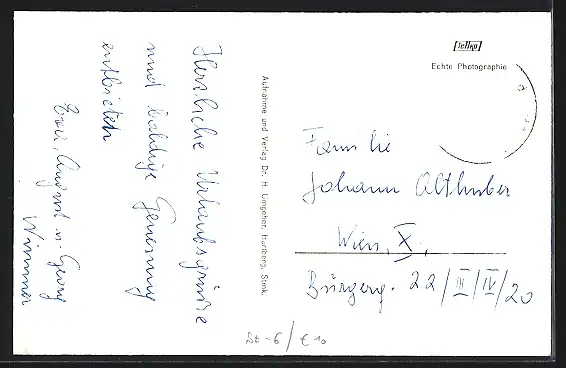 Herzliche Urlaubsgrüße
und baldige Genesung
entbieten
Evi, August u. Georg
Wimmer
Aufnahme und Verlag Dr. H. Lingeher, Hartberg, Stmk.
Echte Photographie
Familie
Johann Althuber
Wien, X.,
Bürgerg. 22/III/IV/20
St-6/€10